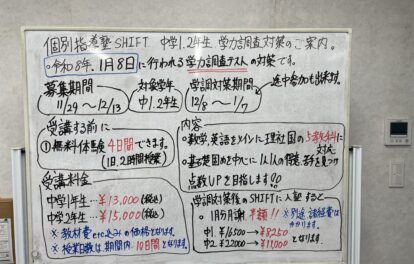 個別指導塾SHIFT 中学1.2年生 学力調査対策のご案内。
○令和8年、1月8日に行われる学力調査テストの対策です。
募集期間
11/29〜12/13
対象学年
中1.2年生
学調対策期間
12/8〜1/7
途中参加も出来ます。
受講する前に
①無料体験4日間できます。
(1日、2時間授業)
受講料金
中学1年生…¥13,000(税込)
中学2年生…¥15,000(税込)
※教材費etc込みの価格となります。
※授業日数は、期間内、10日間となります。
内容
○数学、英語をメインに理社国の5教科に対応
○基礎範囲を中心に1人1人の得意、苦手を見つけ
点数UPを目指します!!
学調対策後のSHIFTに入塾すると
○1月分月謝半額!! ※別途諸経費は
かかります。
中1.¥16500→¥8250
中2.¥22000→¥11000となります。